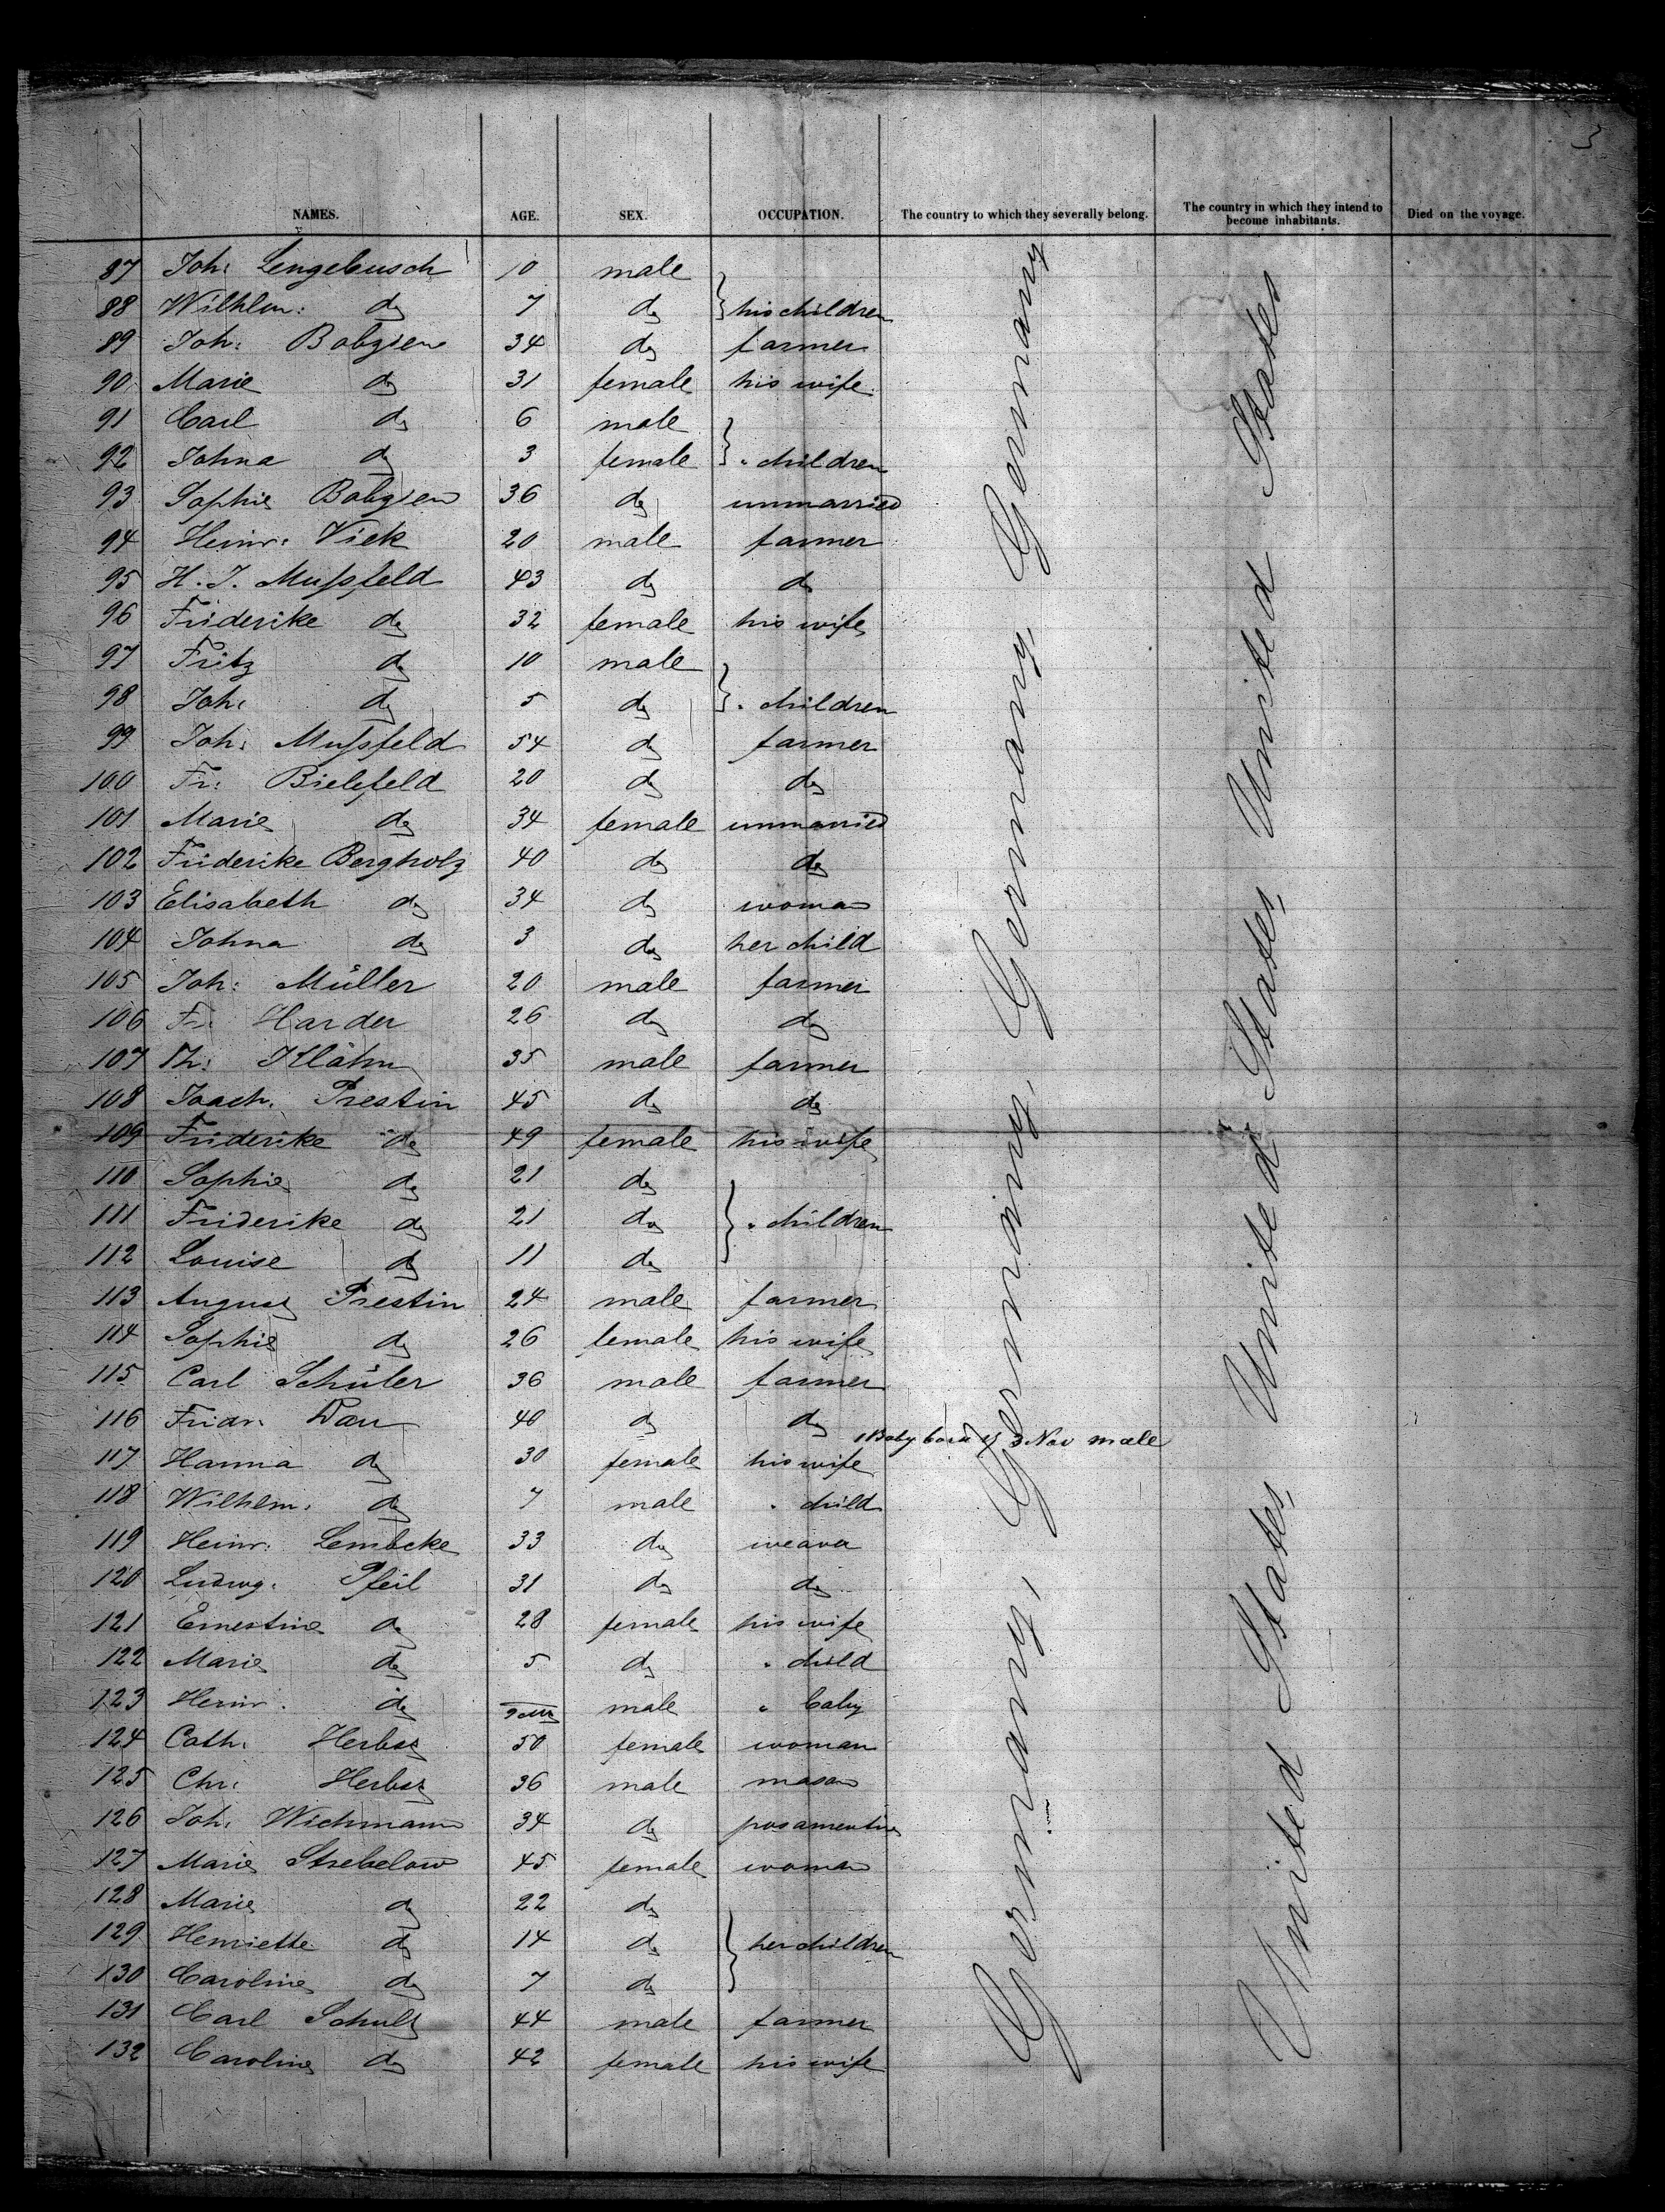 3
NAMES. AGE. SEX. OCCUPATION. The country to which they severally belong. The country in which they intend to become inhabitants. Died on the voyage.
87 Joh: Lengebusch 10 male
88 Wilhlm: do 7 do } his children
89 Joh: Bobzien 34 do farmer
90 Marie do 31 female his wife
91 Carl do 6 male
92 Johna do 3 female } " children
93 Sophie Bobzien 36 do unmarried
94 Heinr: Viek 20 male farmer
95 H. J. Mußfeld 43 do do
96 Friderike do 32 female his wife
97 Fritz do 10 male
98 Joh: do 5 do } " children
99 Joh: Mußfeld 54 do farmer
100 Fr: Bielefeld 20 do do
101 Marie do 34 female unmarried
102 Friderike Bergholz 40 do do
103 Elisabeth do 34 do woman
104 Johna do 3 do her child
105 Joh: Müller 20 male farmer
106 Fr: Harder 26 do do
107 Th: Klähn 35 male farmer
108 Joach. Prestin 45 do do
109 Friderike do 49 female his wife
110 Sophie do 21 do
111 Friderike do 21 do } " children
112 Louise do 11 do
113 August Prestin 24 male farmer
114 Sophie do 26 female his wife
115 Carl Schüler 36 male farmer
116 Fridr. Dau 40 do do
1 Baby born 3 Nov male
117 Hanna do 30 female his wife
118 Wilhlm. do 7 male " child
119 Heinr: Lembcke 33 do weaver
120 Ludwg. Pfeil 31 do do
121 Ernestine do 28 female his wife
122 Marie do 5 do " child
123 Heinr. do male " baby
124 Cath: Herbst 50 female woman
125 Chr: Herbst 36 male mason
126 Joh: Wichmann 34 do posamentier
127 Marie Strebelow 45 female woman
128 Marie do 22 do
129 Henriette do 14 do } her children
130 Caroline do 7 do
131 Carl Schult 44 male farmer
132 Caroline do 42 female his wife
Germany, Germany, Germany, Germany, Germany
United States, United States, United States